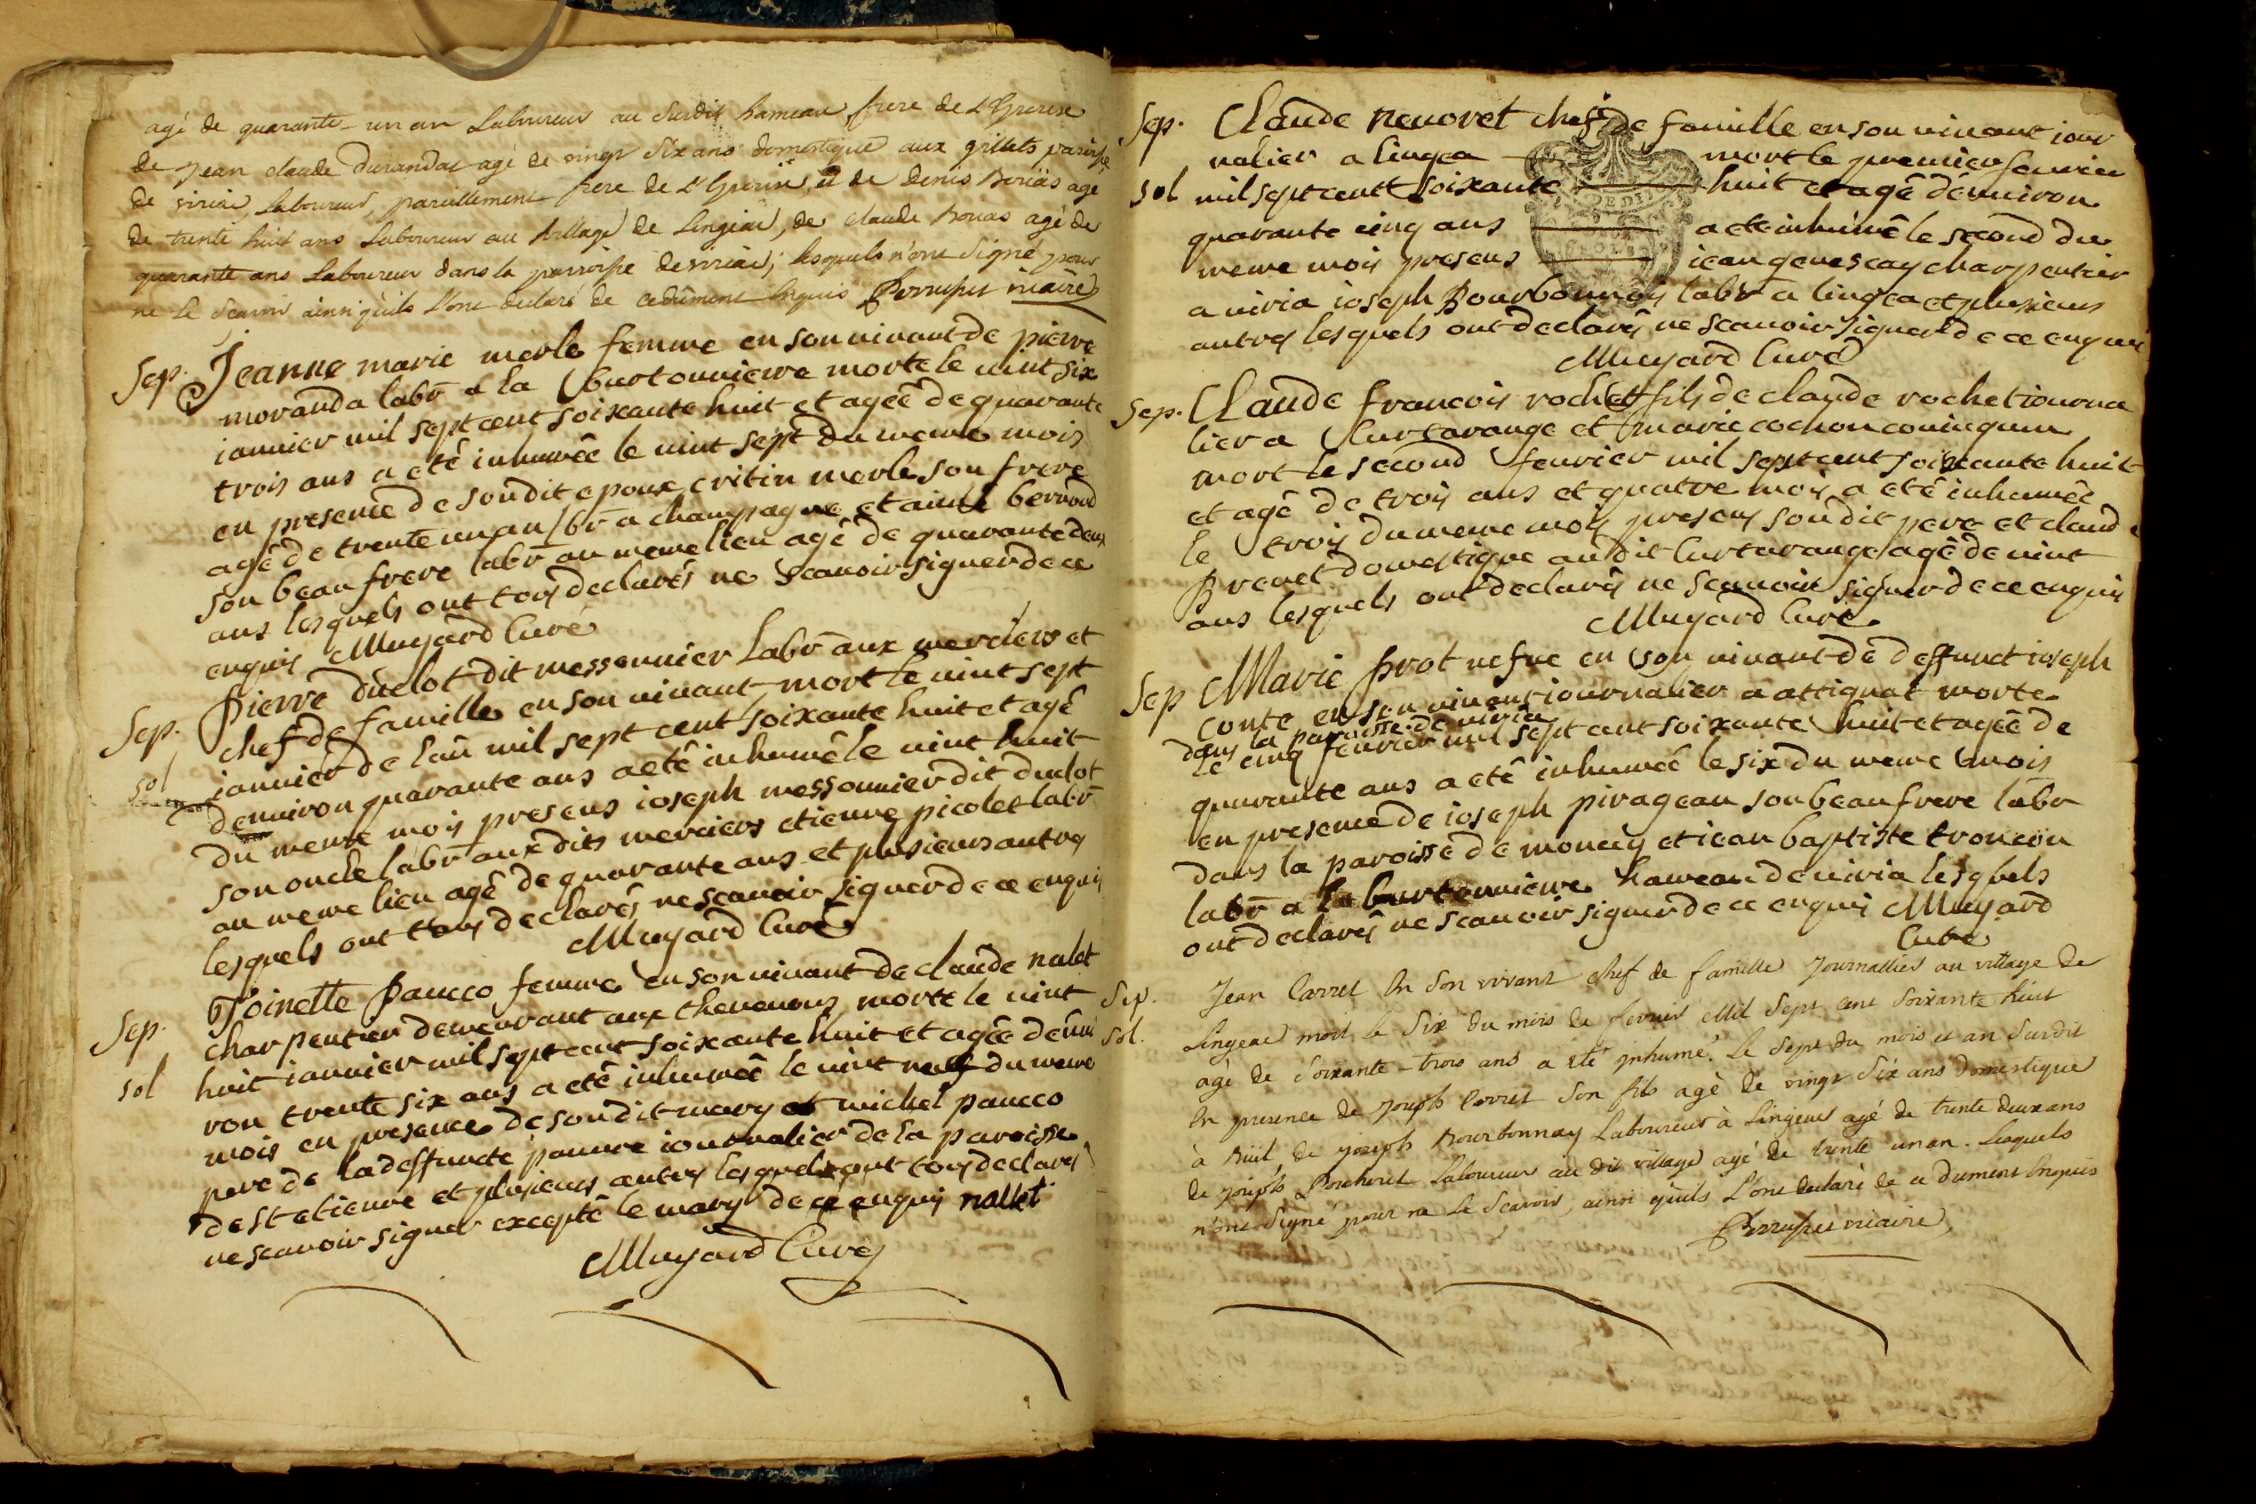 agé de quarante-un an Laboureur au susdit hameau, frere de L'Epouse
de Jean claude Durandas agé de vingt Six ans domestique aux grillets paroisse
de viriac Laboureur, pareillement frere de L'Epouse, et de Denis agé
de trente huit ans Laboureur au village de Lingeas, de claude Bouas agé de
quarante ans Laboureur dans la parroisse de viriac; lesquels n'ont Signé pour
ne Le Scavoir ainsi qu'ils L'ont declaré de ce dûment Enquis Perruquet viaire
Sep. Jeanne marie merle femme en son uiuant de pierre
moranda labr a la burtonniere morte le uint six
ianuier mil sept cent soixante huit et agée de quarante
trois ans a eté inhumée le uint sept du meme mois
en presence de son dit epoux critin merle son frere
agé de trente un an lbr a champagne et aimé berrod
son beau frere labr au meme lieu agé de quarante deux
ans lesquels ont tous declarés ne scauoir signer de ce
enquis Muyard Curé
Sep. Pierre duclot dit messonnier labr aux merciers et
chef de famille en son uiuant mort le uint sept
sol ianuier de l'an mil sept cent soixante huit et agé
denuiron quarante ans a eté inhumé le uint huit
du meme mois presens ioseph messonnier dit duclot
son oncle labr aux dits merciers etienne picolet labr
au meme lieu agé de quarante ans et plusieurs autres
lesquels ont tous declarés ne scauoir signer de ce enquis
Muyard Curé
Sep. Toinette paucco femme en son uiuant de claude nalet
charpentier demeurant aux theuenons morte le uint
sol huit ianuier mil sept cent soixante huit et agée denui
ron trente six ans a eté inhumée le uint neuf du meme
mois en presence de son dit mary et michel paucco
pere de la deffuncte pauure iournalier de la paroisse
de st etienne et plusieurs autres lesquels ont tous declarés
ne scauoir signer excepté le mary de ce enquis nallet
Muyard Curé
Sep. Claude neuoret chef de famille en son uiuant iour
nalier a lingea mort le premier feurier
sol mil sept centt soixante huit et agé denuiron
quarante cinq ans a eté inhumé le second du
meme mois presens iean geuescay charpentier
a uiria ioseph Bourbonnois labr a lingea et plusieurs
autres lesquels ont declarés ne scauoir signer de ce enquis
Muyard Curé
Sep. Claude francois rochet fils de claude rochet iourna
lier a Curtarange et marie cochon
mort le second feurier mil sept cent soixante huit
et agé de trois ans et quatre mois a eté inhumé
le trois du meme mois presens son dit pere et claude
Breuet domestique au dit Curtarange agé de uint
ans lesquels ont declarés ne scauoir signer de ce enquis
Muyard Curé
Sep Marie prot uefue en son uiuant de deffunct ioseph
conte en son uiuant iournalier a attignat morte
dans la paroisse de uiria
le cinq feurier mil sept cent soixante huit et agée de
quarante ans a eté inhumée le six du meme mois
en presence de ioseph pirageau son beau frere labr
dans la paroisse de moncey et iean baptiste troncon
labr a la burtonniere hameau de uiria lesquels
ont declarés ne scauoir signer de ce enquis Muyard
Curé
Sep. Jean Carrel En Son vivant chef de famille Journallier au village de
Sol. Lingeac mort le Six du mois de fevrier Mil Sept cent Soixante huit
agé de Soixante-trois ans a eté inhumé Le Sept du mois et an Susdit
En presence de Joseph Carrel Son fils agé de vingt Six ans domestique
à de joseph Bourbonnay Laboureur à Lingeac agé de trente deux ans
de joseph Laboureur au dit village agé de trente un an. Lesquels
n'ont Signé pour ne Le Scavoir, ainsi qu'ils L'ont declaré de ce dument Enquis
Perruquet viaire